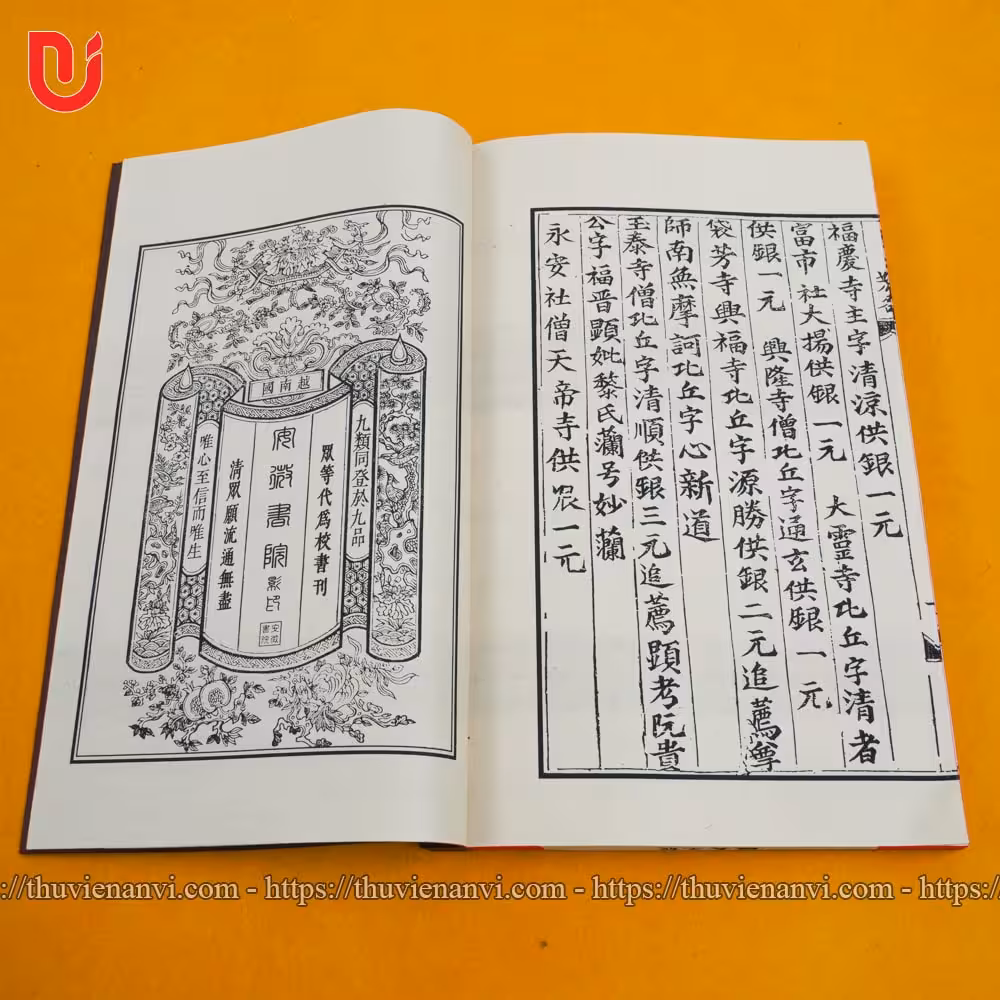 福慶寺主字清涼供銀一元
富市社大揚供銀一元 大靈寺比丘字清者
供銀一元 興隆寺僧比丘字通玄供銀一元
袋芳寺興福寺比丘字源勝供銀二元追薦尊
師南無摩訶比丘字心新道
至泰寺僧比丘字清順供銀三元追薦顕考阮貴
公字福晋顕妣黎氏灡号妙灡
永安社僧天帝寺供艮一元
越南國
九類同登於九品
眾等代為校書刊
安微書院影印
安微書院
清眾願流通無盡
唯心至信而唯生
://thuvienanvi.com - https://thuvienanvi.com - https://thuvienanvi.com - https:/